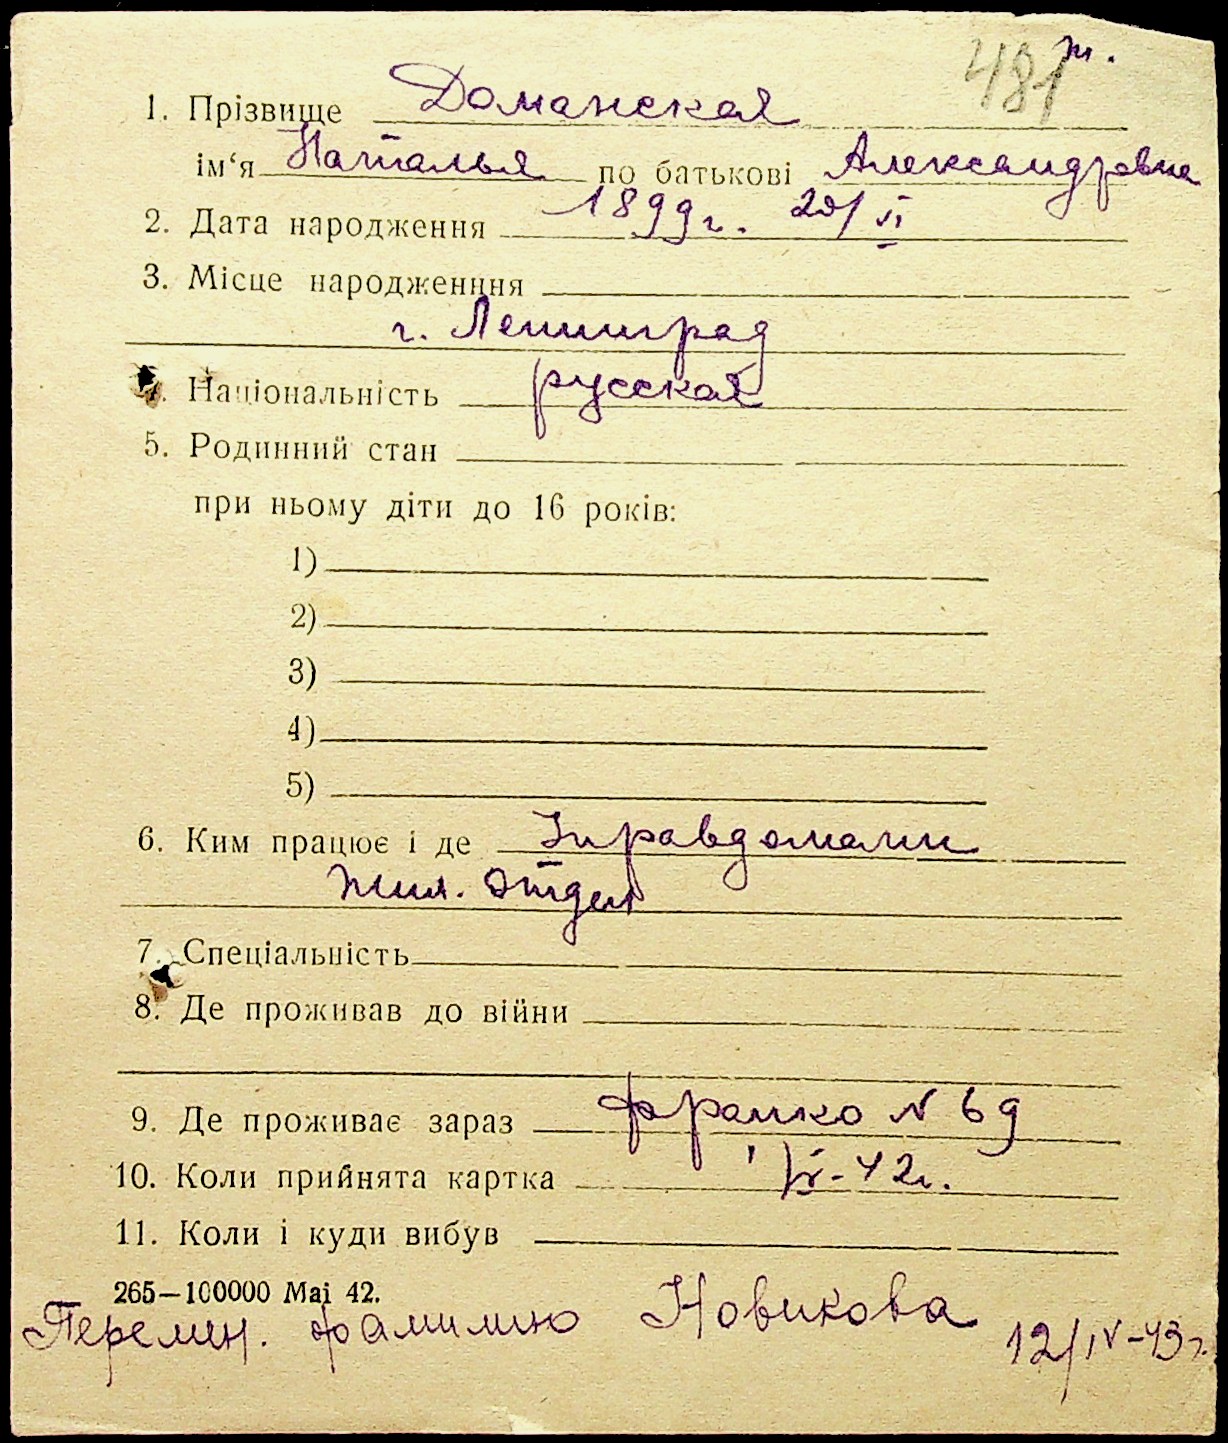 481 ж.
1. Прізвище Доманская
ім‘я Наталья по батькові Александровна
2. Дата народження 1899г. 20/VI
3. Місце народженння
г. Ленинград
4. Національність русская
5. Родинний стан
при ньому діти до 16 років:
1)
2)
3)
4)
5)
6. Ким працює і де Управдомами
Жил. отдел
7. Спеціальність
8. Де проживав до війни
9. Де проживає зараз Франко N 69
10. Коли прийнята картка -42г.
11. Коли і куди вибув
265—100000 Mai 42.
Перемен. фамилию Новикова 12/IV-43г.